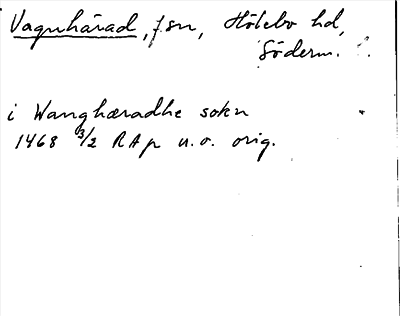 Vagnhärad, fsn, Hölebo hd,
Söderm. l.
i Wanghæradhe sokn
1468 3/2 RAp u.o. orig.